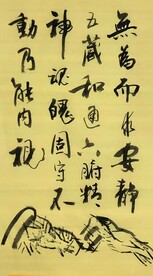 無為而求安靜
五藏和通六腑精
神魂魄固守不
動乃能內視